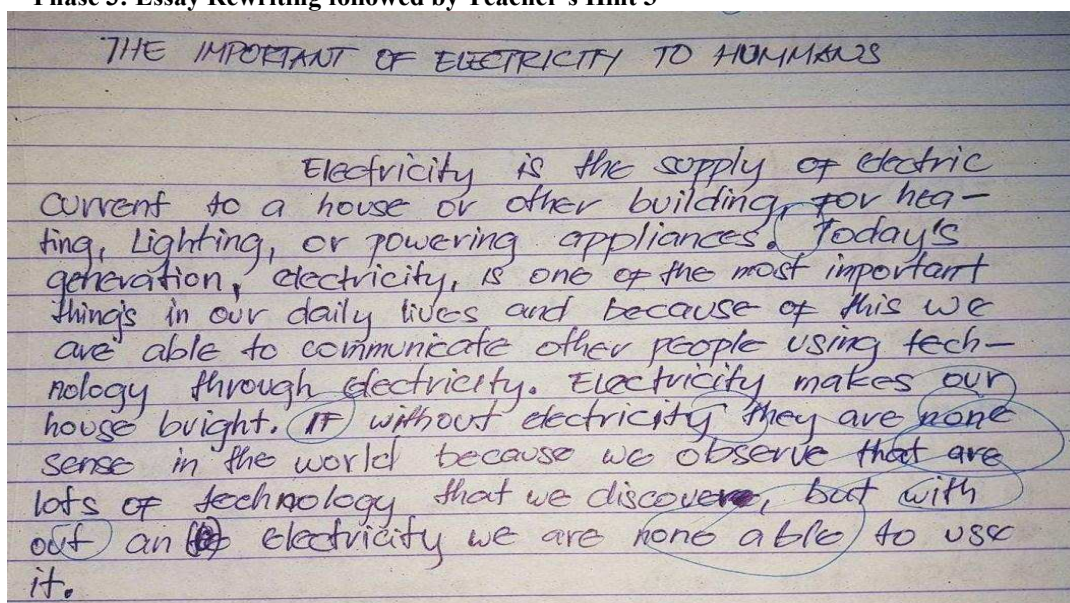 Phase 3: Essay Rewriting followed by Teacher's Hint 3
THE IMPORTANT OF ELECTRICITY TO HUMMANS
Electricity is the supply of electric
current to a house or other building, for hea-
ting, Lighting, or powering appliances. Today's
generation, electricity, is one of the most important
things in our daily lives and because of this we
are able to communicate other people using tech-
nology through electricity. Electricity makes our
house bright. If without electricity they are none
sense in the world because we observe that are
lots of technology that we discover, but with
out an electricity we are none able to use
it.